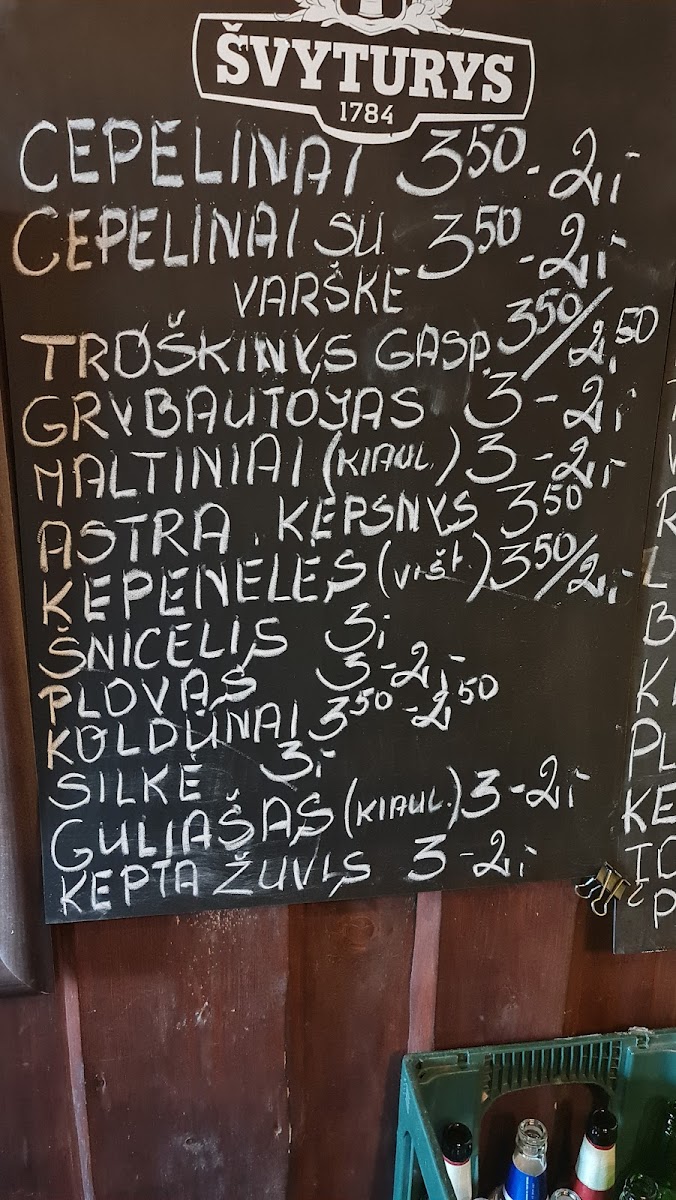 ŠVYTURYS
1784
CEPELINAI 350 - 2,-
CEPELINAI SU 350 - 2,-
VARŠKE
TROŠKINYS GASP. 350/2,50
GRYBAUTOJAS 3 - 2,-
MALTINIAI (KIAUL.) 3 - 2,-
ASTRA KEPSNYS 350
KEPENELES (VIŠT.) 350/2,-
ŠNICELIS 3,-
PLOVAS 3 - 2,-
KOLDŪNAI 350 - 250
SILKĖ 3,-
GULIAŠAS (KIAUL.) 3 - 2,-
KEPTA ŽUVIS 3 - 2,-
B
PL
KE